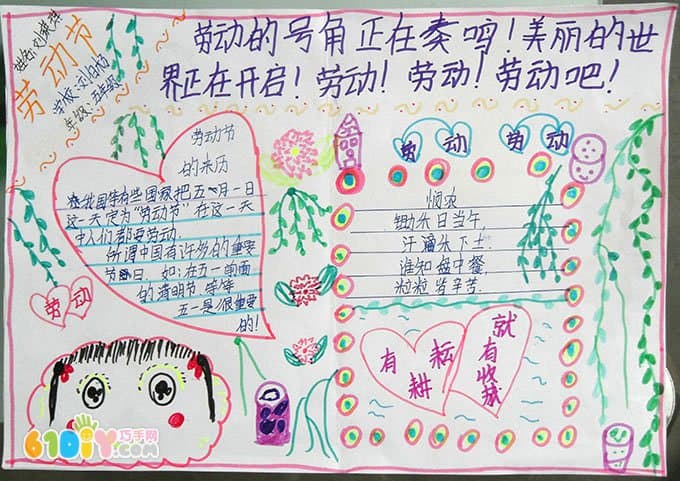 劳动节
年级:五年级
劳动的号角正在奏鸣!美丽的世
界正在开启!劳动!劳动!劳动吧!
劳动节
的来历
在我国等有些国家把五月一日
这一天定为"劳动节"在这一天
中人们都要劳动
所谓中国有许多的重要
节日.如:在五一前面
的清明节 等等
五一是很重要
的!
劳动
劳动
劳动
悯农
锄禾日当午,
汗滴禾下土.
谁知盘中餐,
粒粒皆辛苦.
有耕耘
就有收获
61DIY巧手网
.com